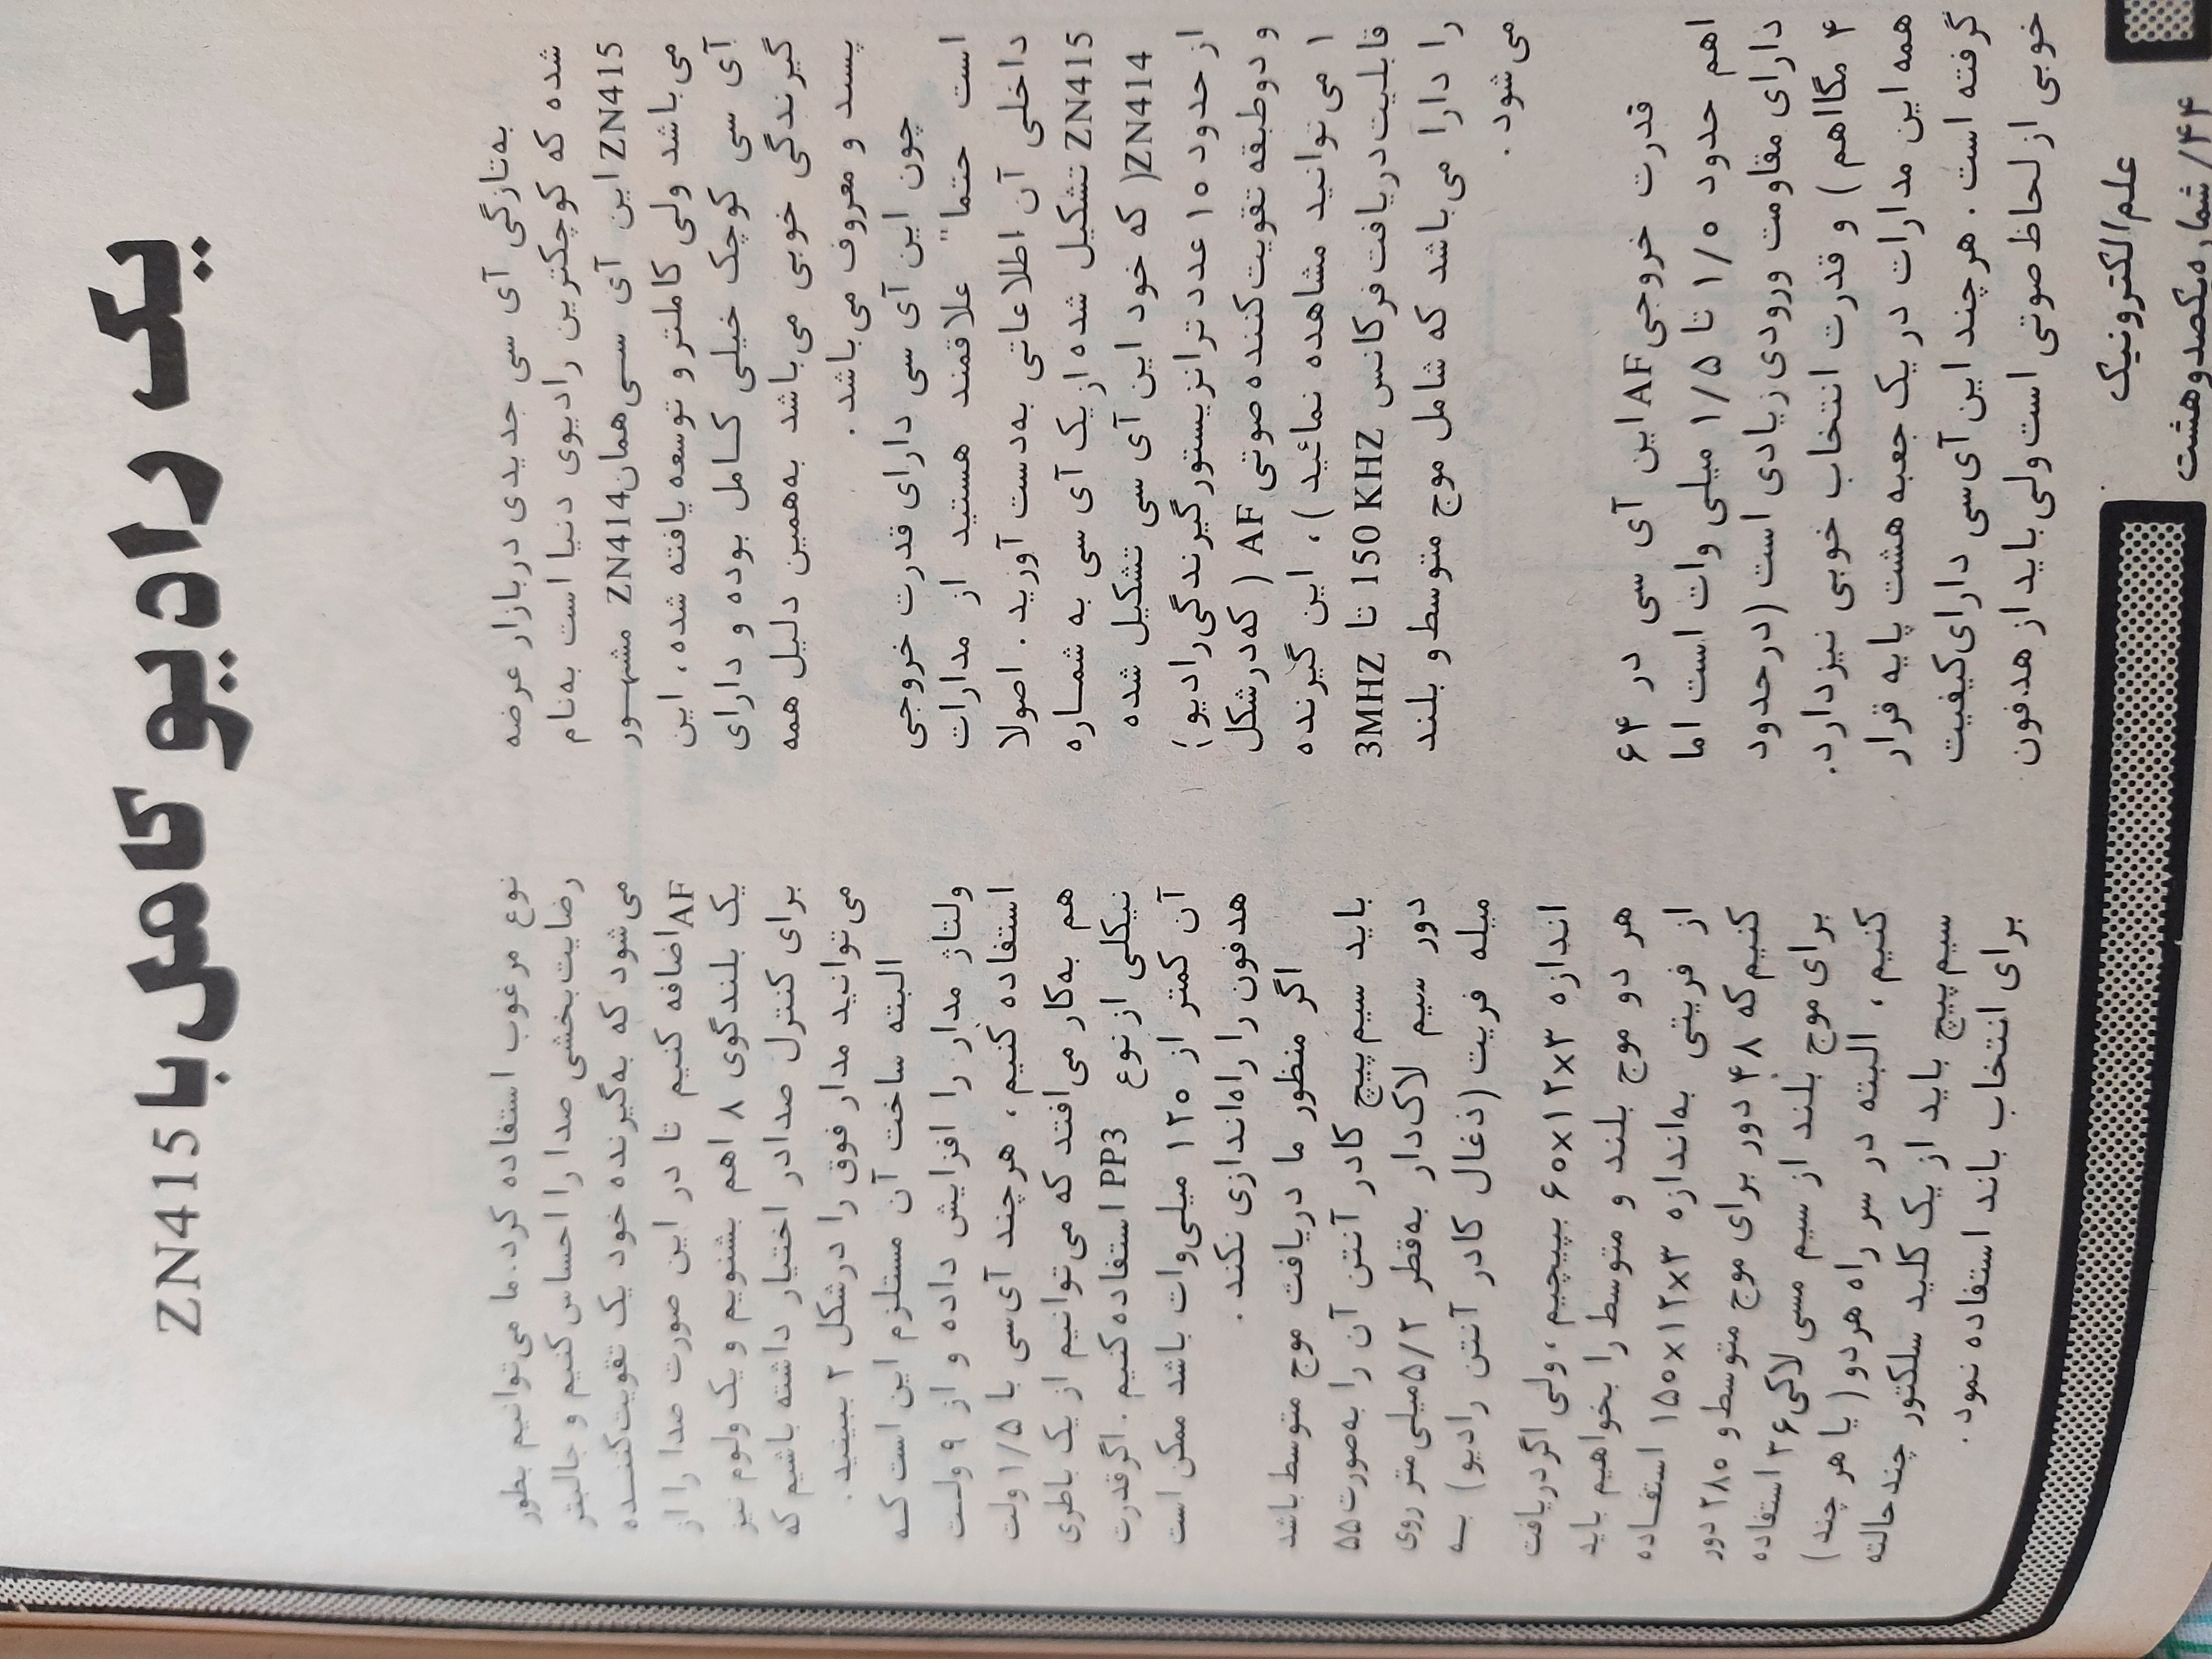 یک رادیو کامل با ZN415
به‌تازگی آی سی جدیدی دربازار عرضه
شده که کوچکترین رادیوی دنیا است به‌نام
ZN415 این آی سی همان ZN414 مشهور
می‌باشد ولی کاملتر و توسعه یافته شده، این
آی سی کوچک خیلی کامل بوده و دارای
گیرندگی خوبی می‌باشد به‌همین دلیل همه
پسند و معروف می‌باشد.
چون این آی سی دارای قدرت خروجی
است حتما" علاقمند هستید از مدارات
داخلی آن اطلاعاتی به‌دست آورید. اصولا
ZN415 تشکیل شده از یک آی سی به شماره
ZN414( که خود این آی سی تشکیل شده
از حدود ۱۰ عدد ترانزیستور گیرندگی رادیو؛
و دوطبقه تقویت‌کننده صوتی AF ( که‌در شکل
۱ می‌توانید مشاهده نمائید )، این گیرنده
قابلیت‌دریافت‌فرکانس 150 KHZ تا 3MHZ
را دارا می‌باشد که شامل موج متوسط و بلند
می‌شود.
قدرت خروجی AF این آی سی در ۶۴
اهم حدود ۱/۰ تا ۱/۵ میلی وات است اما
دارای مقاومت ورودی زیادی است (درحدود
۴ مگااهم) و قدرت انتخاب خوبی نیزدارد.
همه این مدارات در یک جعبه هشت پایه قرار
گرفته است. هرچند این آی‌سی دارای‌کیفیت
خوبی از لحاظ صوتی است ولی باید از هدفون
نوع مرغوب استفاده کرد. ما می‌توانیم بطور
رضایت‌بخشی صدا را احساس کنیم و جالبتر
می‌شود که به‌گیرنده خود یک تقویت‌کننده
AF اضافه کنیم تا در این صورت صدا را از
یک بلندگوی ۸ اهم بشنویم و یک ولوم نیز
برای کنترل صدادر اختیار داشته باشیم که
می‌توانید مدار فوق را درشکل ۲ ببینید.
البته ساخت آن مستلزم این است که
ولتاژ مدار را افزایش داده و از ۹ ولت
استفاده کنیم، هرچند آی‌سی با ۱/۵ ولت
هم به‌کار می‌افتد که می‌توانیم از یک باطری
نیکلی از نوع PP3 استفاده کنیم. اگرقدرت
آن کمتر از ۱۲۰ میلی‌وات باشد ممکن است
هدفون را راه‌اندازی نکند.
اگر منظور ما دریافت موج متوسط باشد
باید سیم‌پیچ کادر آنتن آن را به‌صورت ۵۵
دور سیم لاک‌دار به‌قطر ۵/۲ میلی‌متر روی
میله فریت (ذغال کادر آنتن رادیو) به
اندازه ۶۰×۱۲×۳ بپیچیم، ولی اگردریافت
هر دو موج بلند و متوسط را بخواهیم باید
از فریتی به‌اندازه ۱۵۰×۱۲×۳ استفاده
کنیم‌که ۴۸ دور برای موج متوسط و ۲۸۰ دور
برای موج بلند از سیم مسی لاکی ۳۶ استفاده
کنیم، البته در سر راه هردو ( یا هر چند)
سیم‌پیچ باید از یک کلید سلکتور چندحالته
برای انتخاب باند استفاده نمود.
علم‌الکترونیک
۴۴/شماره‌یکصدوهشت